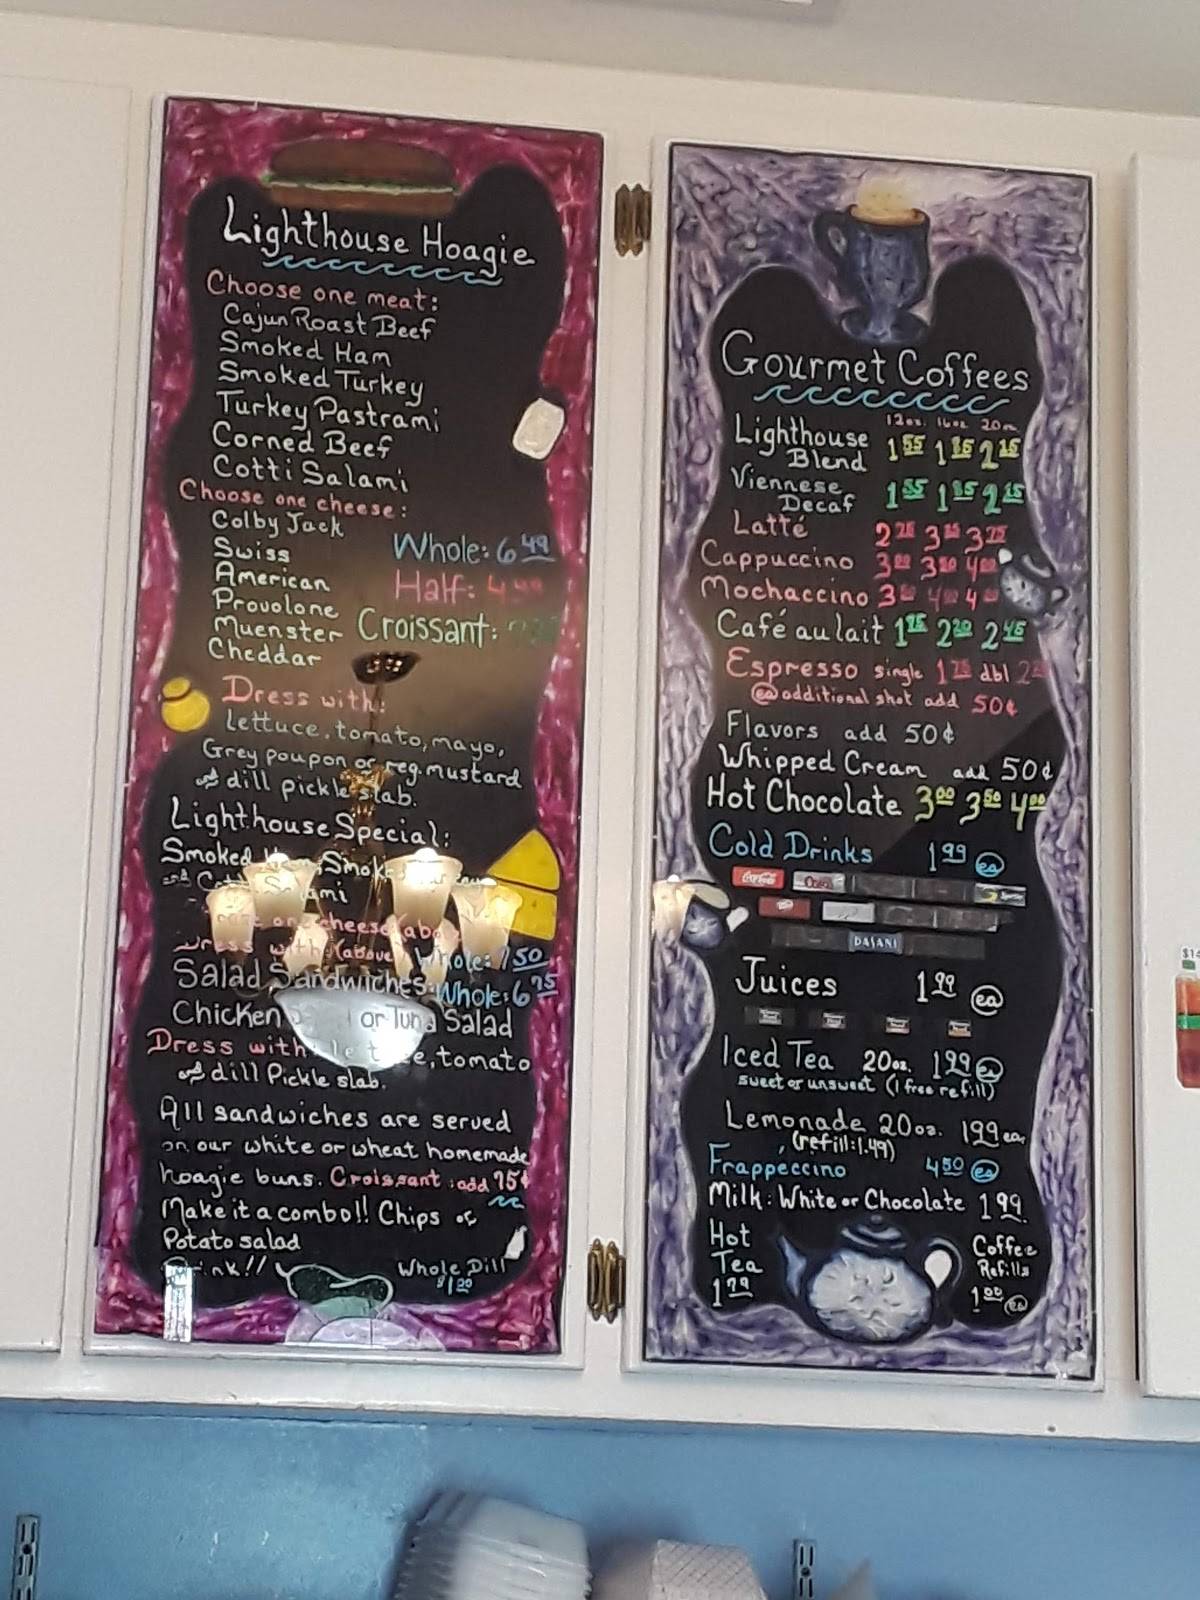 Lighthouse Hoagie
Choose one meat:
Cajun Roast Beef
Smoked Ham
Smoked Turkey
Turkey Pastrami
Corned Beef
Cotti Salami
Choose one cheese:
Colby Jack
Swiss
American
Provolone
Muenster
Cheddar
Whole: 6 49
Half: 4
Croissant:
Dress with:
lettuce, tomato, mayo,
Grey poupon or reg. mustard
and dill pickle slab.
Lighthouse Special:
Smoked
and
cheese
Dress with (above) Whole: 7 50
Salad Sandwiches: Whole: 6 75
Chicken or Tuna Salad
Dress with: tomato
and dill Pickle slab.
All sandwiches are served
on our white or wheat homemade
hoagie buns. Croissant: add 75¢
Make it a combo!! Chips or
Potato salad
Drink!!
Whole Dill
$1.00
Gourmet Coffees
12oz. 16oz. 20oz.
Lighthouse Blend 1 55 1 85 2 15
Viennese Decaf 1 55 1 85 2 15
Latté 2 75 3 25 3 75
Cappuccino 3 00 3 50 4 00
Mochaccino 3 4 00 4
Café au lait 1 95 2 20 2 45
Espresso single 1 75 dbl 2
ea additional shot add 50¢
Flavors add 50¢
Whipped Cream add 50¢
Hot Chocolate 3 00 3 50 4 00
Cold Drinks 1 99 ea
Coca-Cola
DASANI
Juices 1 99 ea
Iced Tea 20oz. 1 99 ea
sweet or unsweet (1 free refill)
Lemonade 20oz. 1 99 ea.
(refill: 1.49)
Frappéccino 4 50 ea
Milk: White or Chocolate 1 99
Hot
Tea
1 79
Coffee
Refills
1 00 ea
$14